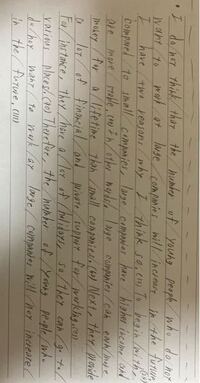 I do not think that the number of young people who do not
want to work at large companies will increase in the future.
I have two reasons why I think so. To begin with,
compared to small companies, large companies have higher income and
are more stable. With them, working large companies can earn more
money for a lifetime than small companies. Next, they provide
a lot of financial and private support for working.
For instance, they have a lot of holidays, so they can go to
various places. Therefore, the number of young people who
do not want to work at large companies will not increase
in the future.